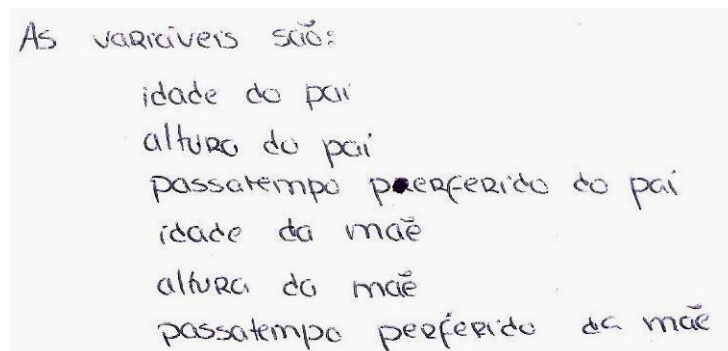 As variáveis são:
idade do pai
altura do pai
passatempo perferido do pai
idade da mãe
altura da mãe
passatempo perferido da mãe